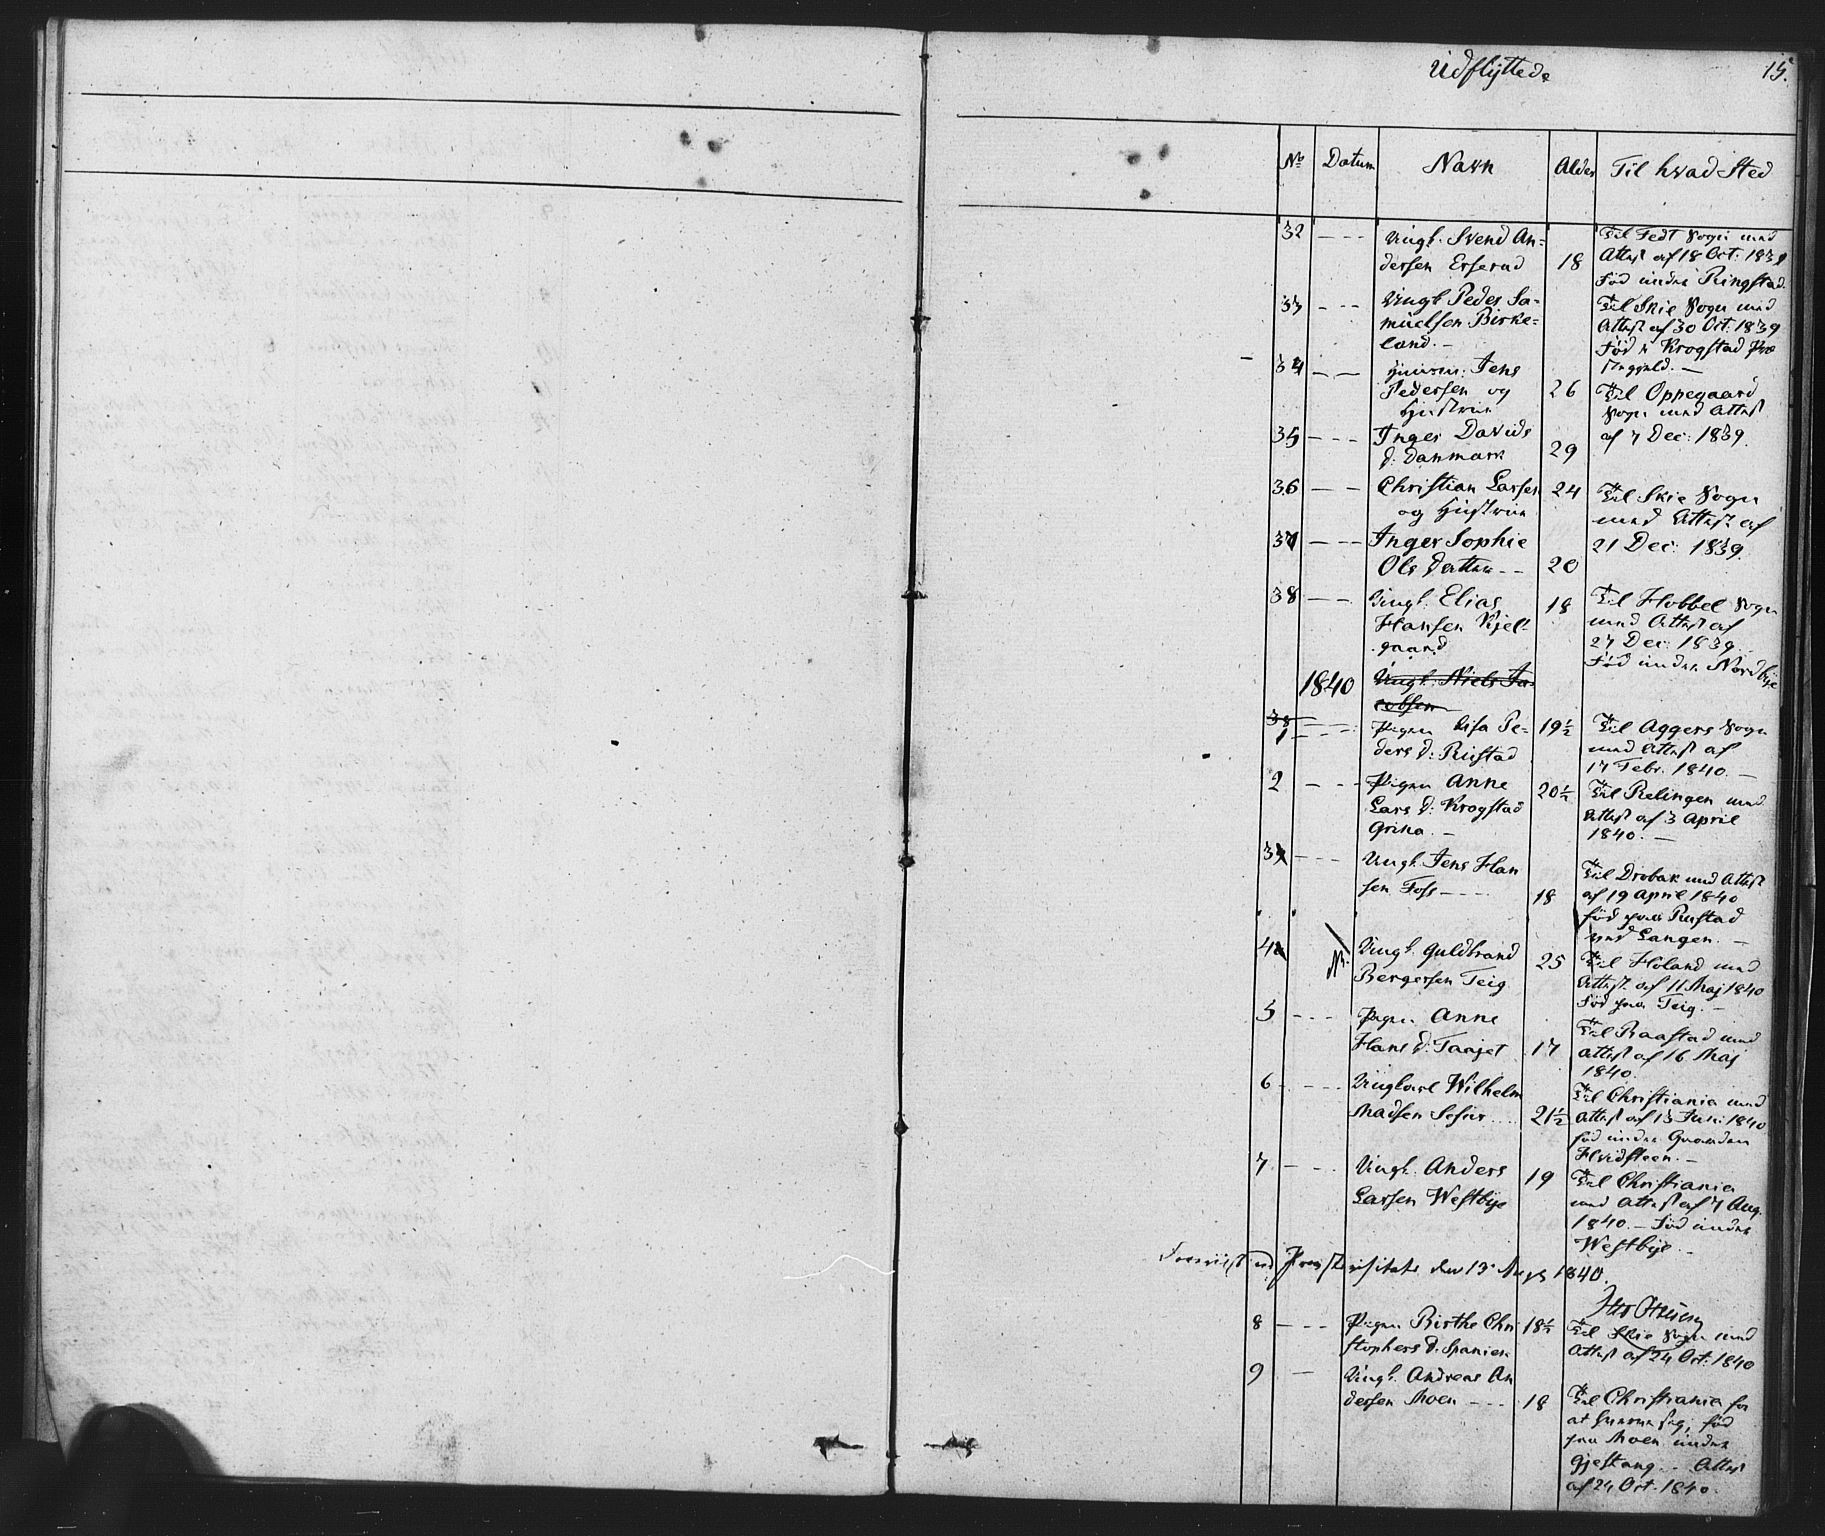 Udflyttede
15.
No Datum Navn Alder Til hvad Sted
32 - - - Ungk. Svend An= Til Fedt Sogn med
dersen Erserud 18 Attest af 18 Oct. 1839
Fød under Ringstad.
33 - - - Ungk Peder Sa= Til Skie Sogn med
muelsen Birke= Attest af 30 Oct. 1839
land. - Fød i Krogstad Præ
stegjeld. -
34 - - Huusm: Jens
Pedersen og 26 Til Oppegaard
Hustrue Sogn med Attest
35 - - - Inger Davids af 7 Dec: 1839.
d: Danmark 29
36 - - Christian Larsen 24 Til Skie Sogn
og Hustrue med Attest af
37 - - - Inger Sophie 21 Dec: 1839.
Ols datter - - 20
38 - - - Ungk. Elias 18 Til Hobbel Sogn
Hansen Kjel= med Attest af
gaard 27 Dec: 1839.
Fød under Nordbye
1840 Ungk. Niels Ja=
cobsen
38
1 - - - Pigen Lisa Pe= 19½ Til Aggers Sogn
ders d: Rustad med Attest af
17 Febr. 1840. -
2 - - - Pigen Anne 20½ Til Relingen med
Lars d: Krogstad Attest af 3 April
Grina. - 1840. -
3 - - - Ungk. Jens Han Til Drøbak med Attest
sen Foss - - - 18 af 19 April 1840
Fød paa Rustad
ved Langen. -
4 Ungk. Guldbrand 25 Til Høland med
Bergersen Teig Attest af 11 Maj 1840
Fød paa Teig. -
5 - - - Pigen Anne Til Raastad med
Hans d: Taajet 17 Attest af 16 Maj
1840.
6 - - - Ungkarl Wilhelm Til Christiania med
Madsen 21½ Attest af 13 Juni 1840
fød under
Hvidsteen. -
7 - - - Ungk. Anders 19 Til Christiania
Larsen Westbye med Attest af 7 Aug.
1840. - Fød under
Westbye. -
Foreviist ved Provstevisitats den 13 Augs 1840.
8 - - - Pigen Birthe Chri 18½ Til Skie Sogn med
stophers d: Spanien Attest af 24 Oct. 1840
9 - Ungk. Andreas An
dersen Moen - - - 18 Til Christiania for
at ernære sig, fød
paa Moen under
Gjestang. - Attest
af 24 Oct. 1840.